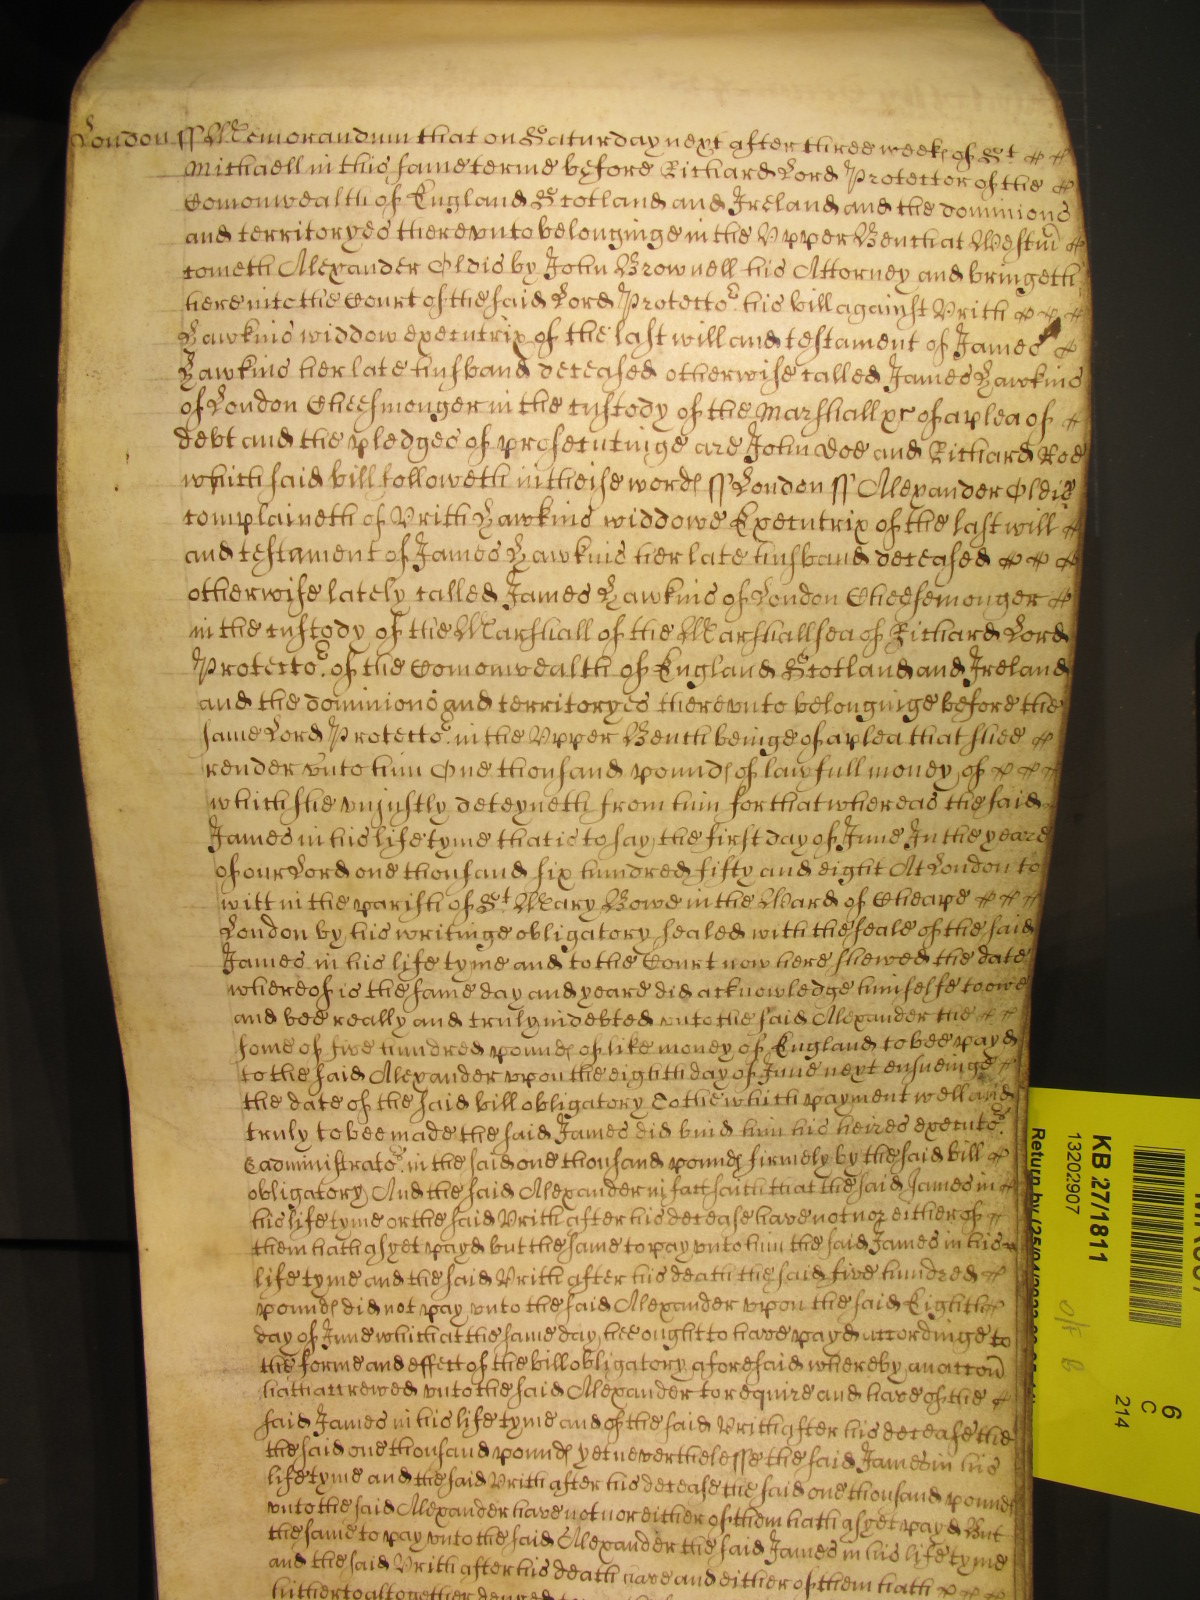 London ss Memorandum that on Saturday next after three weekes of St
Michaell in this same terme before Richard Lord Protector of the
Comonwealth of England Scotland and Ireland and the dominions
and territoryes thereunto belonginge in the Vpper Bench at Westm
cometh Alexander Oldis by John Brownell his Attorney and bringeth
here into the Court of the said Lord Protector his bill against Vrith
Hawkins widdow executrix of the last will and testament of James
Hawkins her late husband deceased otherwise called James Hawkins
of London Cheesmonger in the custody of the Marshall &c of a plea of
debt and the pledges of prosecutinge are John Doe and Richard Roe
which said bill followeth in theise words ss London ss Alexander Oldis
complaineth of Vrith Hawkins widdowe Executrix of the last will
and testament of James Hawkins her late husband deceased
otherwise lately called James Hawkins of London Cheesemonger
in the custody of the Marshall of the Marshallsea of Richard Lord
Protector of the Comonwealth of England Scotland and Ireland
and the dominions and territoryes thereunto belonginge before the
same Lord Protector in the Vpper Bench beinge of a plea that shee
render vnto him One thousand pounds of lawfull money of
which she vnjustly deteyneth from him for that whereas the said
James in his life tyme that is to say the first day of June In the yeare
of our Lord one thousand six hundred fifty and eight At London to
witt in the parish of St Mary Bowe in the Ward of Cheape
London by his writinge obligatory sealed with the seale of the said
James in his life tyme and to the Court now here shewed the date
whereof is the same day and yeare did acknowledge himselfe to owe
and bee really and truly indebted vnto the said Alexander the
some of five hundred pounds of like money of England to bee payd
to the said Alexander vpon the eighth day of June next ensueinge
the date of the said bill obligatory To the which payment well and
truly to bee made the said James did bind him his heires executors
& administrators in the said one thousand pounds firmely by the said bill
obligatory And the said Alexander in fact saith that the said James in
his life tyme or the said Vrith after his decease have not nor either of
them hath as yet payd but the same to pay vnto him the said James in his
life tyme and the said Vrith after his death the said five hundred
pounds did not pay vnto the said Alexander vpon the said Eighth
day of June which at the same day hee ought to have payd accordinge to
the forme and effect of the bill obligatory aforesaid whereby an accon
hath accrewed vnto the said Alexander to require and have of the
said James in his life tyme and of the said Vrith after his decease the
the said one thousand pounds yet neverthelesse the said James in his
life tyme and the said Vrith after his decease the said one thousand pounds
vnto the said Alexander have not nor either of them hath as yet payd But
the same to pay vnto the said Alexander the said James in his life tyme
and the said Vrith after his death have and either of them hath
hitherto altogether denyed
KB 27/1811
13202907
Return by (25/04/2022
6
C
214
O/F B